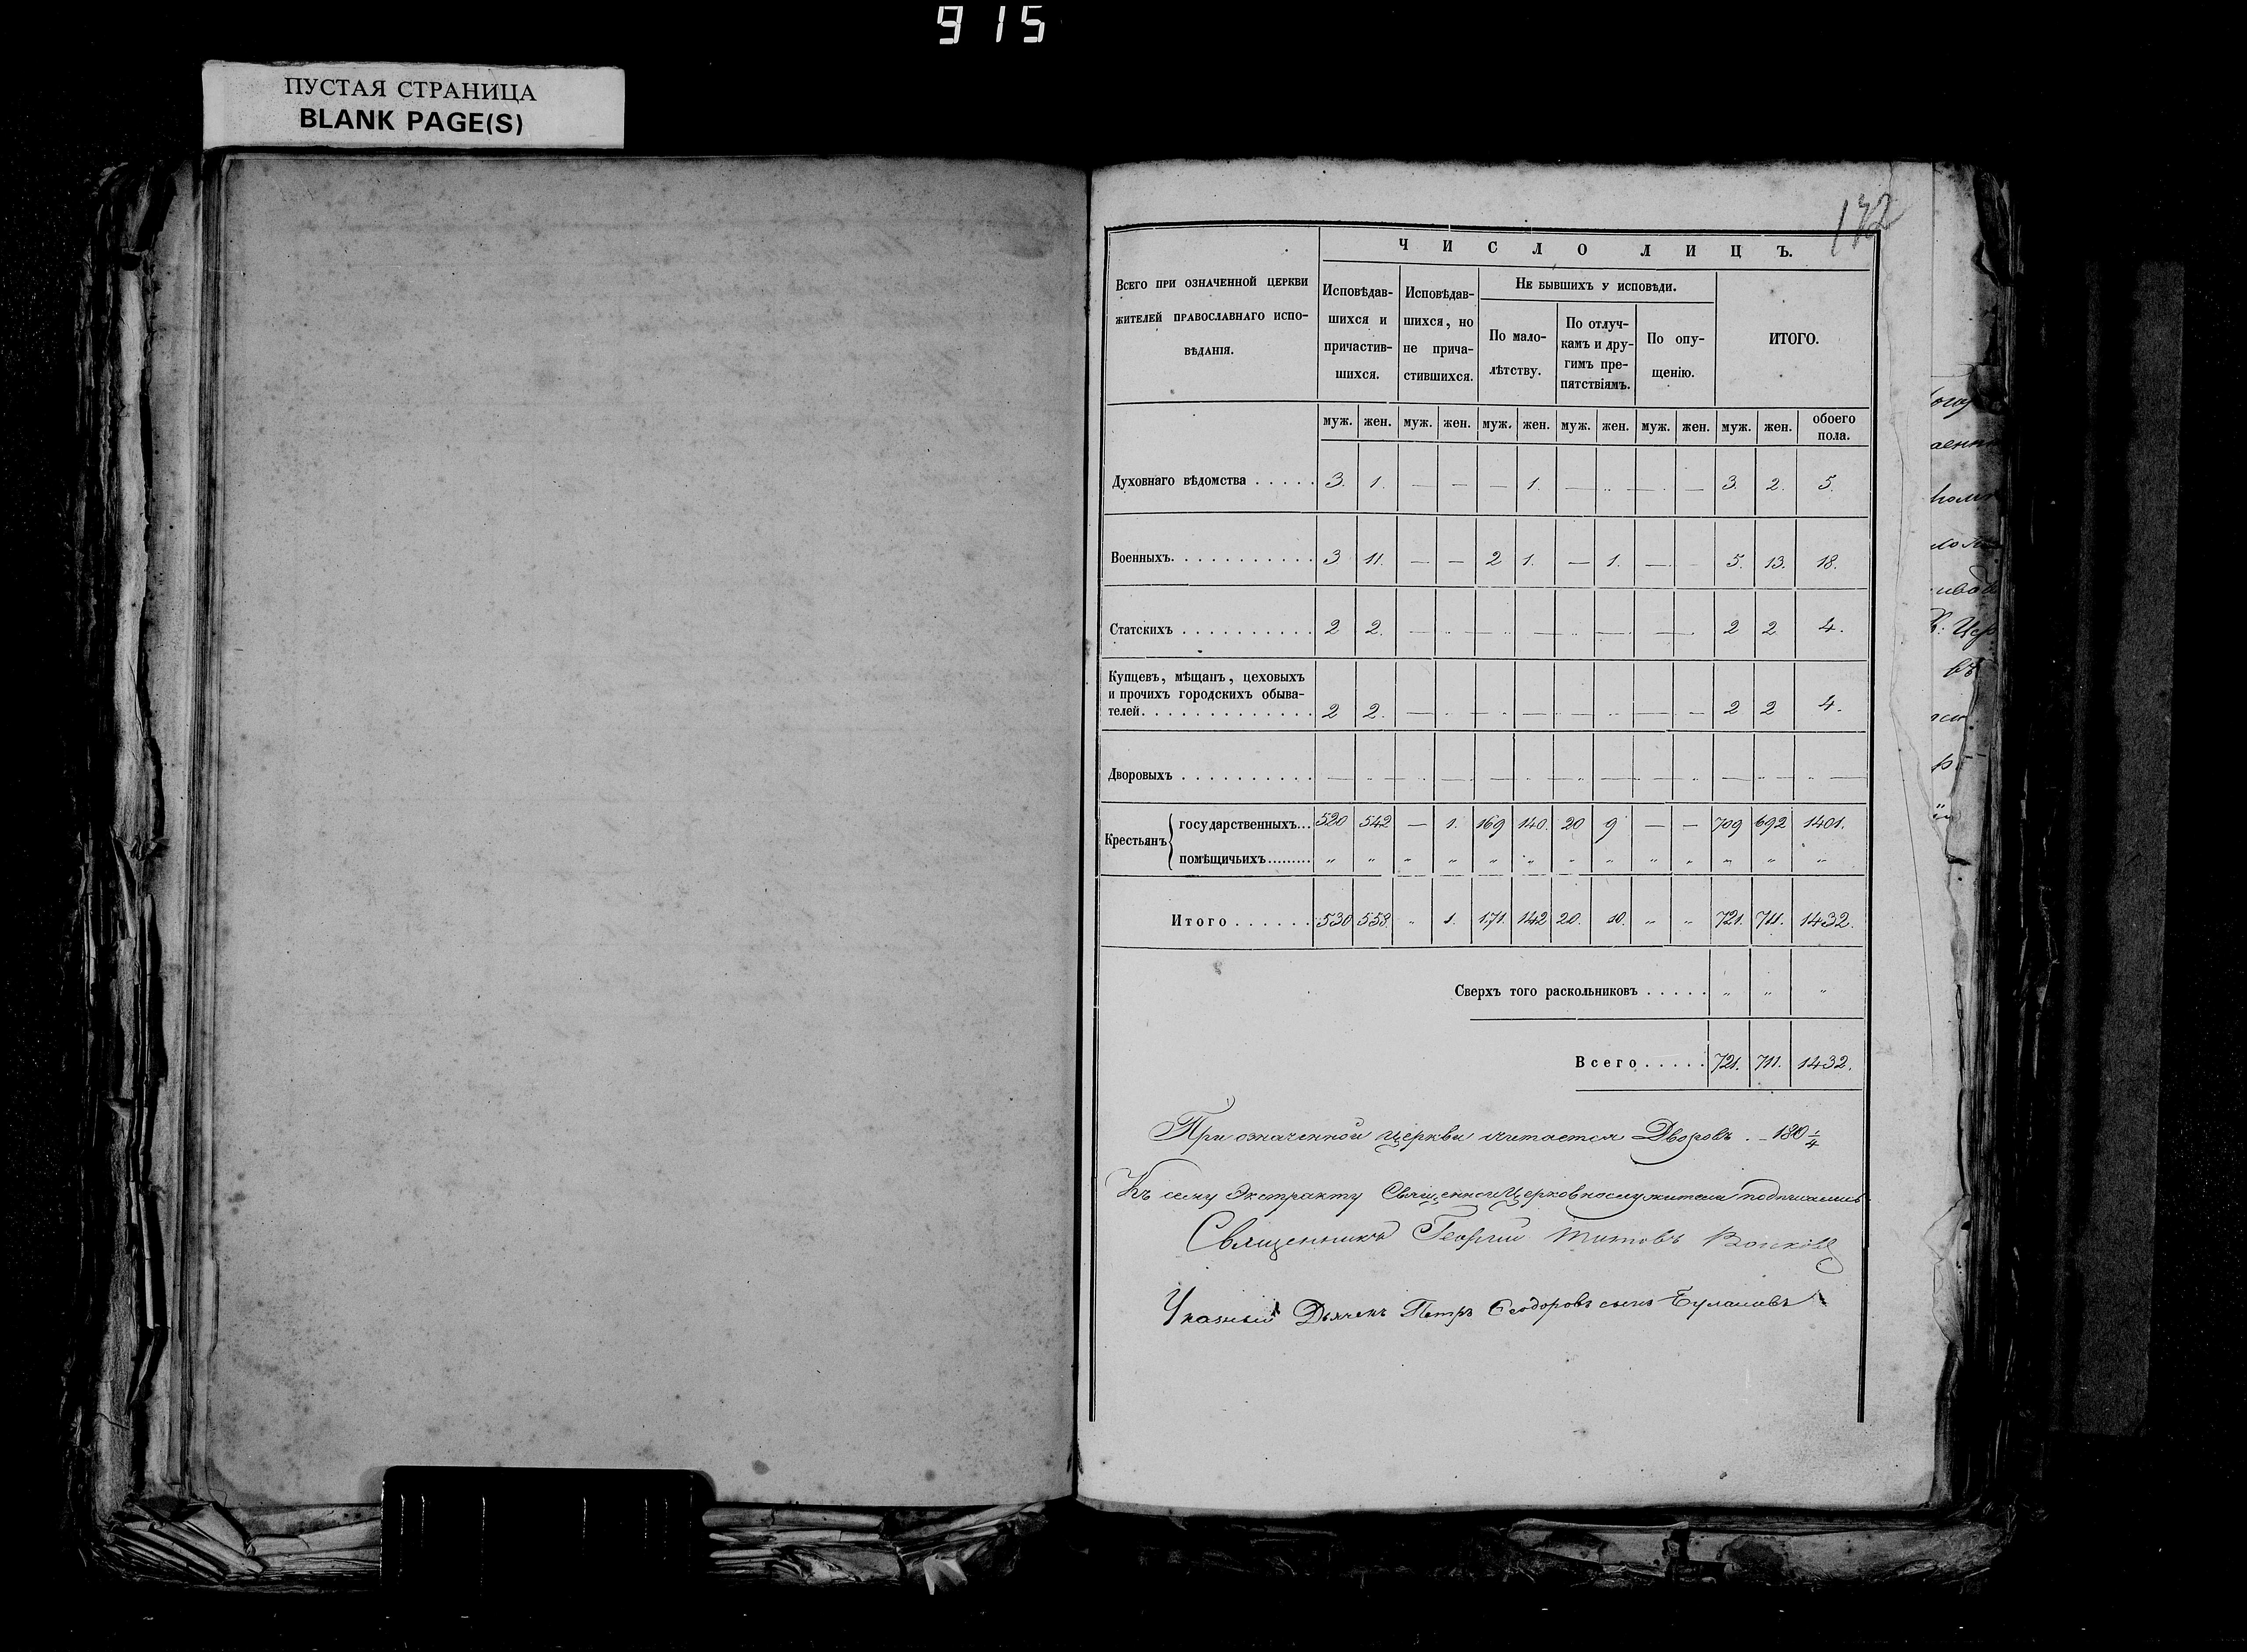 915
ПУСТАЯ СТРАНИЦА
BLANK PAGE(S)
172
ЧИСЛО ЛИЦЪ.
Всего при означенной церкви жителей православнаго исповѣданія.
Исповѣдавшихся и причастившихся.
Исповѣдавшихся, но не причастившихся.
Не бывшихъ у исповѣди.
По малолѣтству.
По отлучкамъ и другимъ препятствіямъ.
По опущенію.
ИТОГО.
муж. жен. муж. жен. муж. жен. муж. жен. муж. жен. муж. жен. обоего пола.
Духовнаго вѣдомства . . . . . 3. 1. — — — 1. — .. — — 3. 2. 5.
Военныхъ. . . . . . . . . . . . 3 11. — — 2 1. — 1. — - 5. 13. 18.
Статскихъ . . . . . . . . . . 2 2. — .. — .. — .. — — 2 2 4.
Купцевъ, мѣщанъ, цеховыхъ
и прочихъ городскихъ обыва-
телей. . . . . . . . . . . . . 2 2. — .. — .. — — .. — — 2 2 4.
Дворовыхъ . . . . . . . . . . — .. — .. — .. — .. — — .. — .. —
Крестьянъ
государственныхъ... 520 542 — 1. 169 140. 20 9 — — 709 692 1401.
помѣщичьихъ......... „ „ „ „ „ „ „ „ „ „ „ „ „
Итого . . . . . . 530 558. „ 1. 171. 142 20. 10. „ „ 721. 711. 1432.
Сверхъ того раскольниковъ . . . . . „ „ „
Всего . . . . . 721. 711. 1432.
При означенной церкви считается Дворовъ . - 180 1/4
Къ сему Экстракту Священноицерковнослужители подписались
Священникъ Георгий Титовъ
Указный Дьячекъ Петръ Ѳеодоровъ сынъ